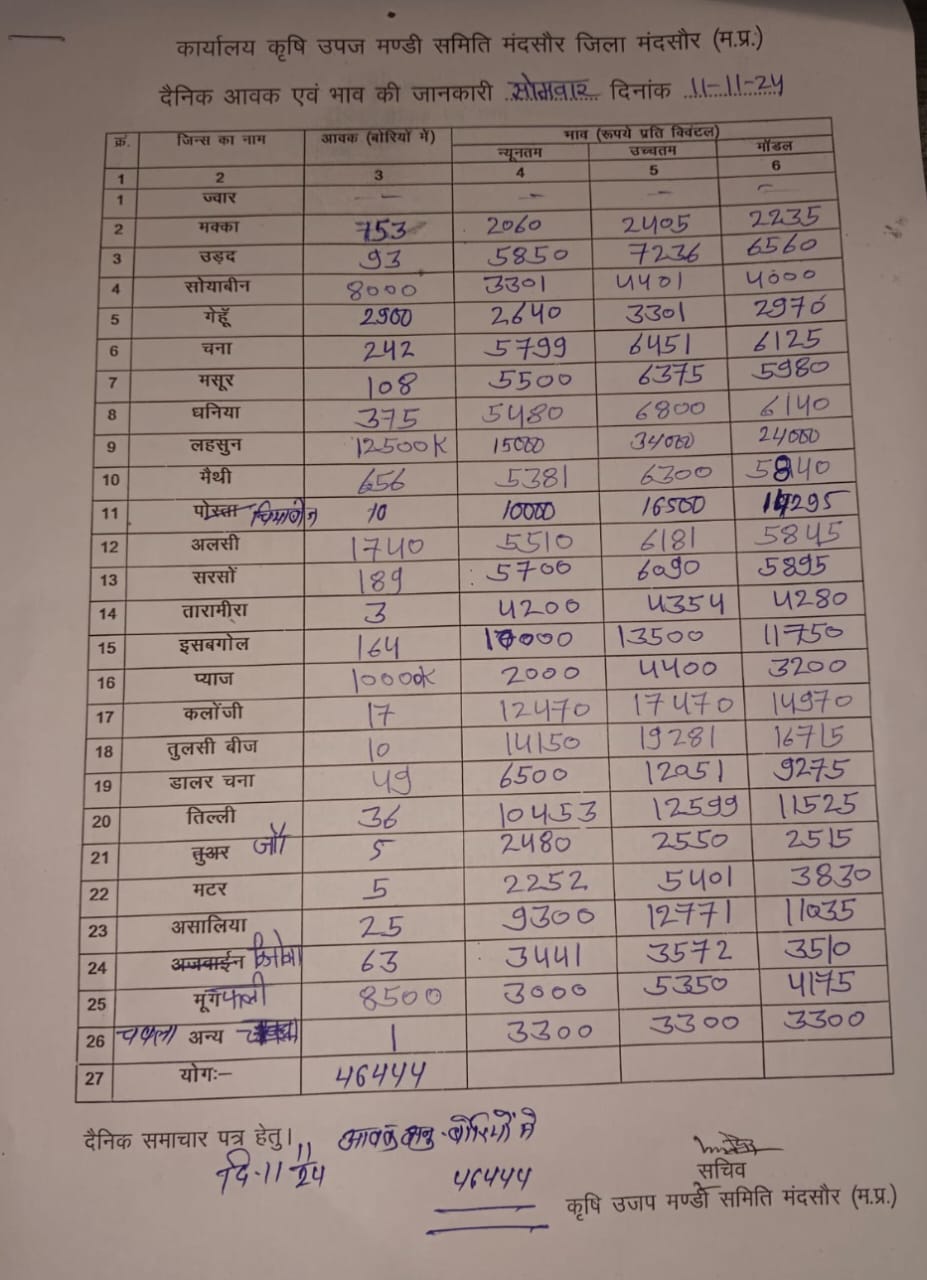 कार्यालय कृषि उपज मण्डी समिति मंदसौर जिला मंदसौर (म.प्र.)
दैनिक आवक एवं भाव की जानकारी सोमवार दिनांक 11-11-24
क्रं. जिन्स का नाम आवक (बोरियों में) भाव (रूपये प्रति क्विंटल)
न्यूनतम उच्चतम मॉडल
1 2 3 4 5 6
1 ज्वार — — — —
2 मक्का 753 2060 2405 2235
3 उड़द 93 5850 7236 6560
4 सोयाबीन 8000 3301 4401 4000
5 गेहूँ 2900 2640 3301 2970
6 चना 242 5799 6451 6125
7 मसूर 108 5500 6375 5980
8 धनिया 375 5480 6800 6140
9 लहसुन 12500K 15000 34000 24000
10 मैथी 656 5381 6300 5840
11 पोस्ता 10 10000 16500 14295
12 अलसी 1740 5510 6181 5845
13 सरसों 189 5700 6090 5895
14 तारामीरा 3 4200 4354 4280
15 इसबगोल 164 10000 13500 11750
16 प्याज 10000K 2000 4400 3200
17 कलोंजी 17 12470 17470 14970
18 तुलसी बीज 10 14150 19281 16715
19 डालर चना 49 6500 12051 9275
20 तिल्ली 36 10453 12599 11525
21 तुअर जौ 5 2480 2550 2515
22 मटर 5 2252 5401 3830
23 असालिया 25 9300 12771 11035
24 अजवाईन 63 3441 3572 3510
25 मूंगफली 8500 3000 5350 4175
26 चवला अन्य 1 3300 3300 3300
27 योगः– 46444
दैनिक समाचार पत्र हेतु। आवक बोरियों मे
दि-11 11/24 46444
सचिव
कृषि उजप मण्डी समिति मंदसौर (म.प्र.)